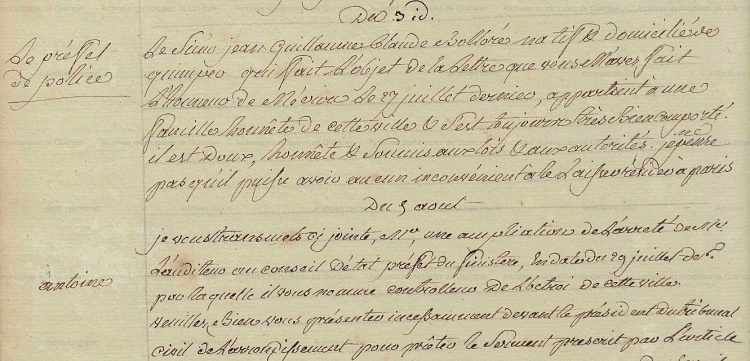 Du 3 id.
Le préfet
de police
Le Sieur jean Guillaume Claude Bolloré natif & domicilié de
quimper qui fait L'objet de la Lettre que vous M'avez fait
L'honneur de M'écrire Le 27 juillet dernier, appartient a une
famille honnête de cette ville & S'est toujours très bien comporté.
il est Doux, honnête & Soumis aux lois & aux autorités. je ne pense
pas qu'il puisse avoir aucun inconvenient a le Laisser résider à paris
Du 5 aout
antoine
je vous transmets ci jointe, Mr, une ampliation de L'arreté de Mr.
L'auditeur au conseil D'état préfet du finistere, En date du 29 juillet der.
par laquelle il vous nomme controlleur De L'octroi de cette ville.
veuillez Bien vous présenter incessamment devant le président du tribunal
civil de L'arrondissement pour prêter le Serment prescrit par L'article